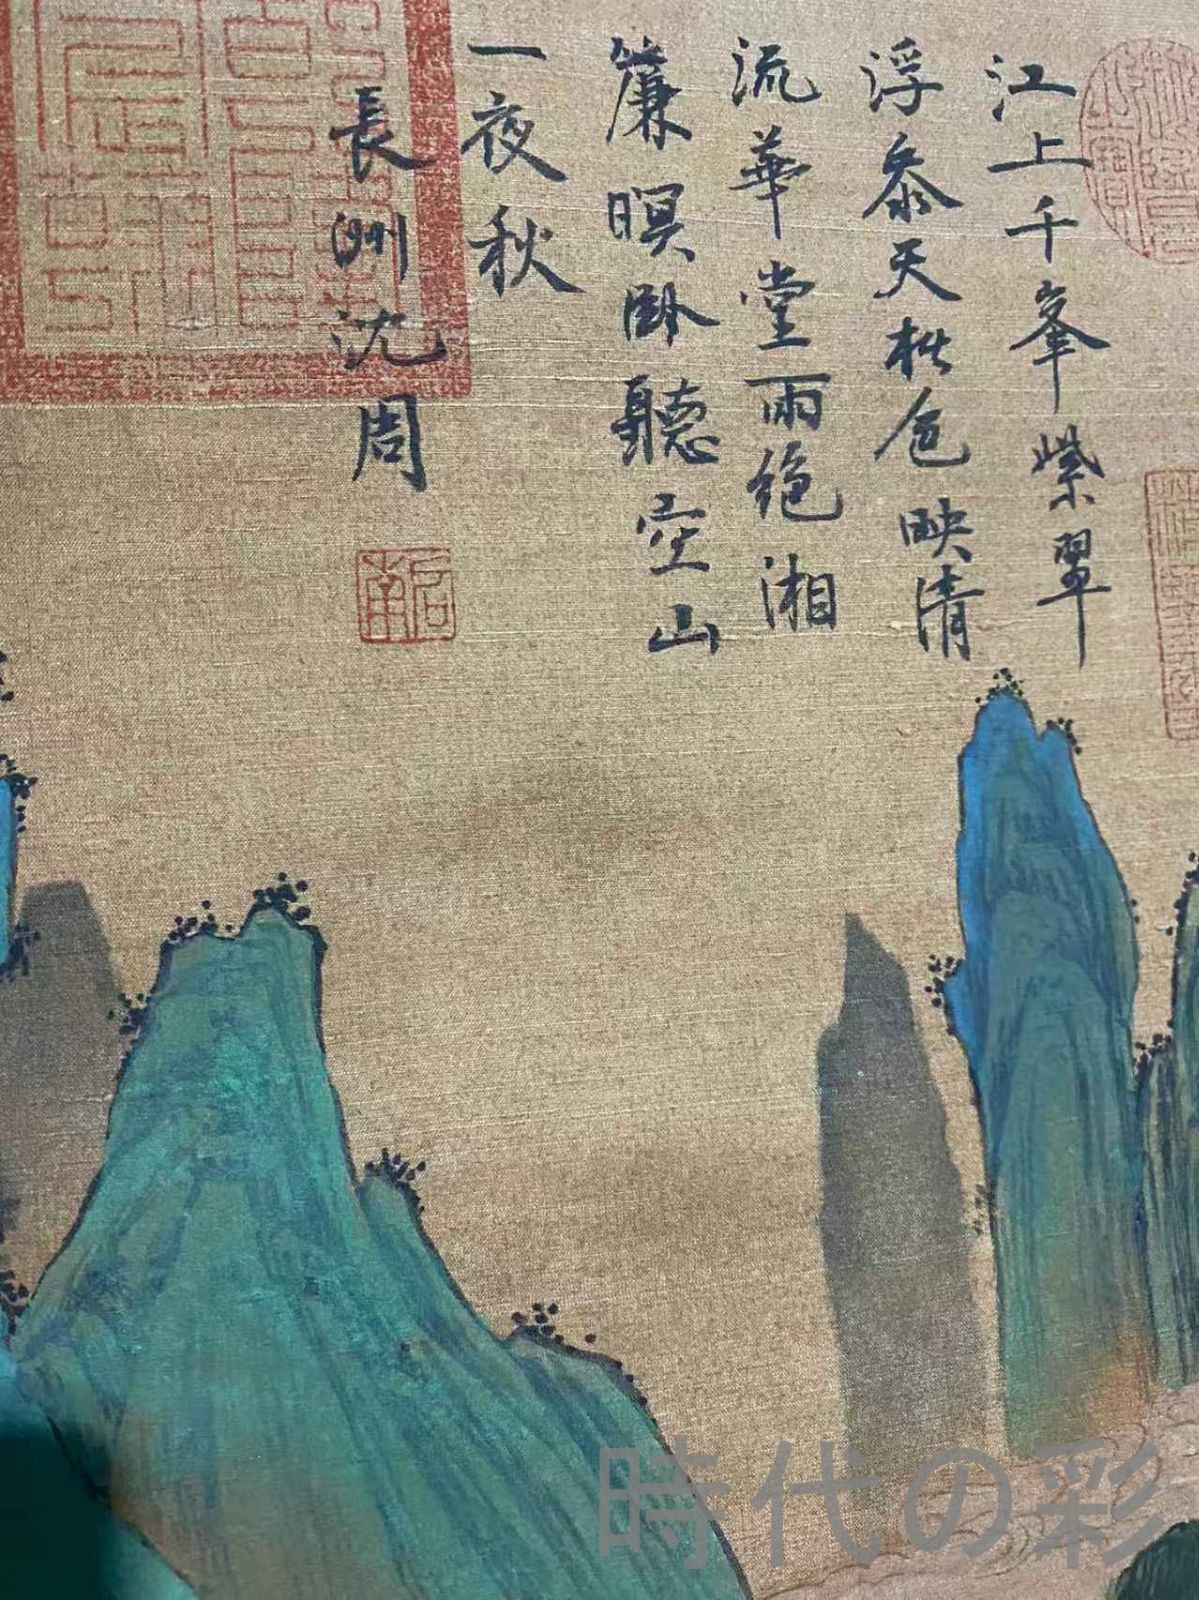 江上千峯紫翠
浮参天松色映清
流華堂雨絶湘
簾暝卧聽空山
一夜秋
長洲沈周
石田
時代の彩